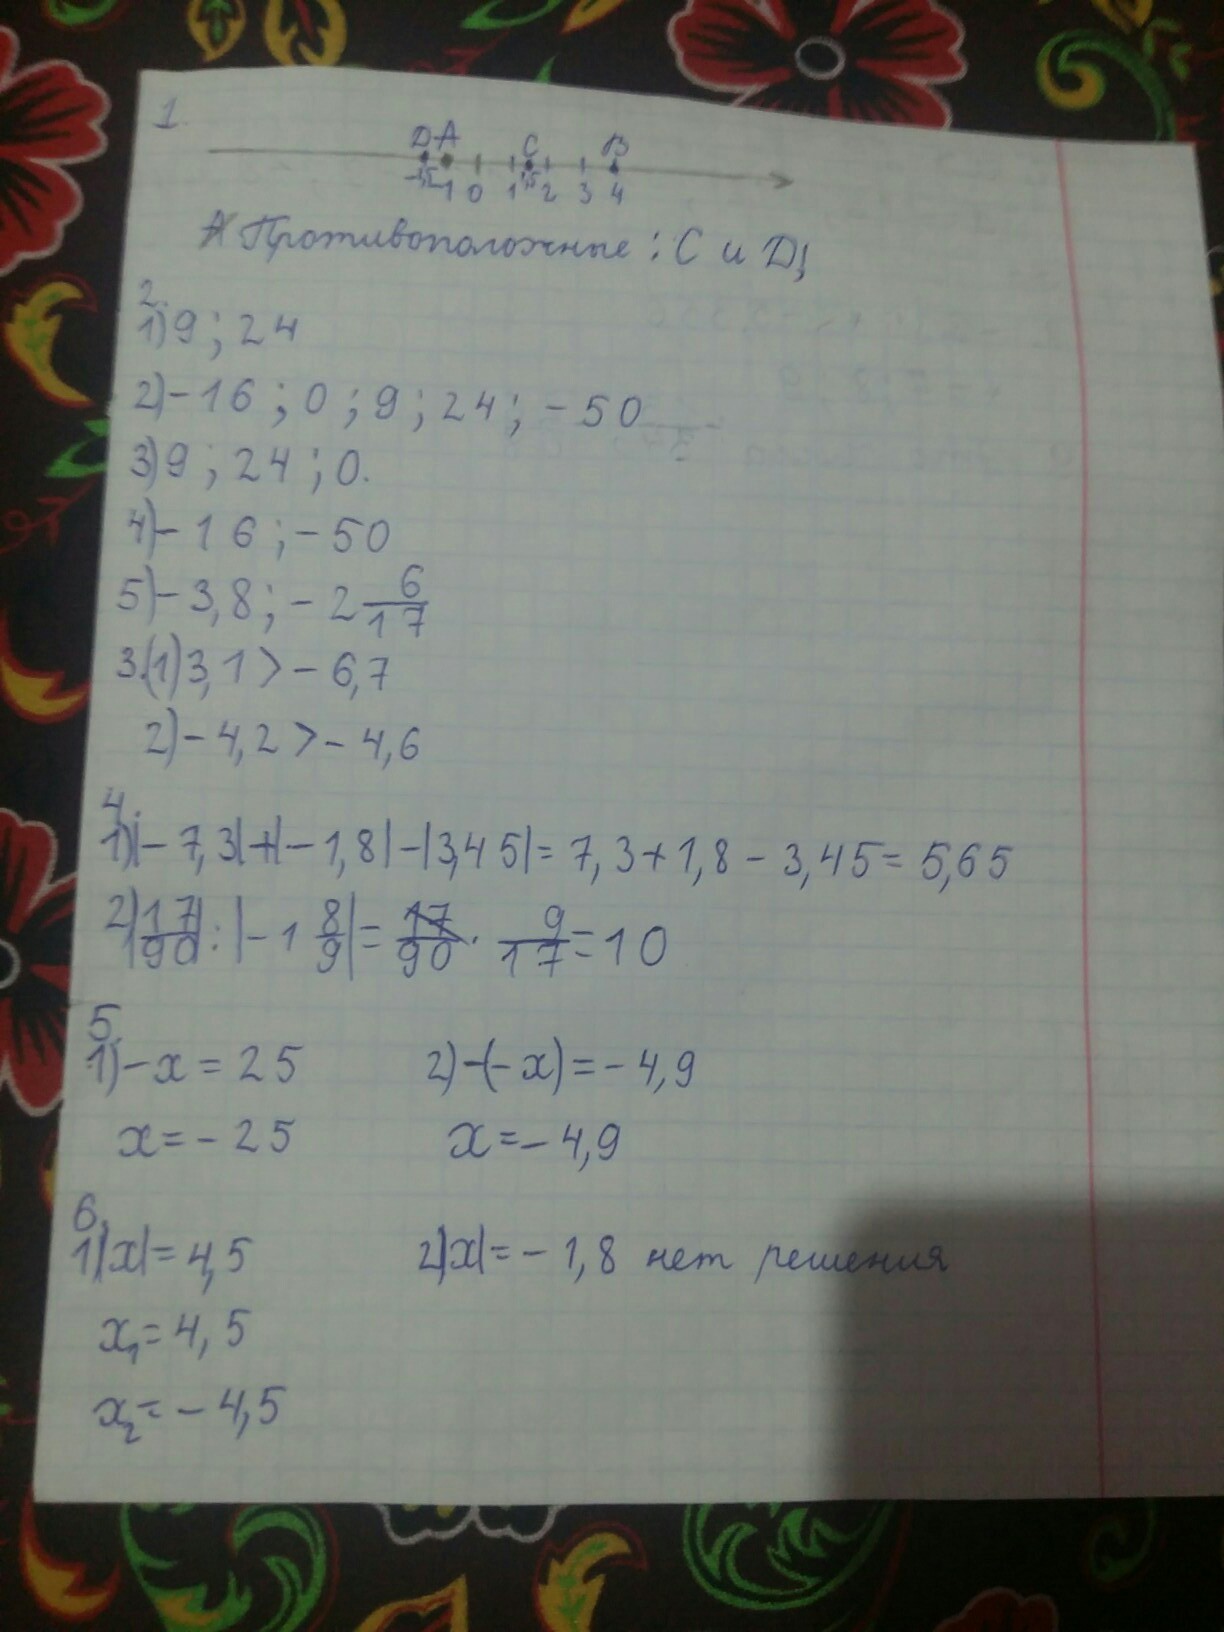 1.
D A C B
-1,5 -1 0 1 1,5 2 3 4
Противоположные: C и D;
2.
1) 9; 24
2) -16; 0; 9; 24; -50
3) 9; 24; 0.
4) -16; -50
5) -3,8; -2 6/17
3. 1) 3,1 > -6,7
2) -4,2 > -4,6
4.
1) |-7,3|+|-1,8|-|3,45|= 7,3+1,8-3,45= 5,65
2) |17/90| : |-1 8/9| = 17/90 · 9/17 = 10
5.
1) -x = 25 2) -(-x) = -4,9
x = -25 x = -4,9
6.
1) |x| = 4,5 2) |x| = -1,8 нет решения
x₁ = 4,5
x₂ = -4,5